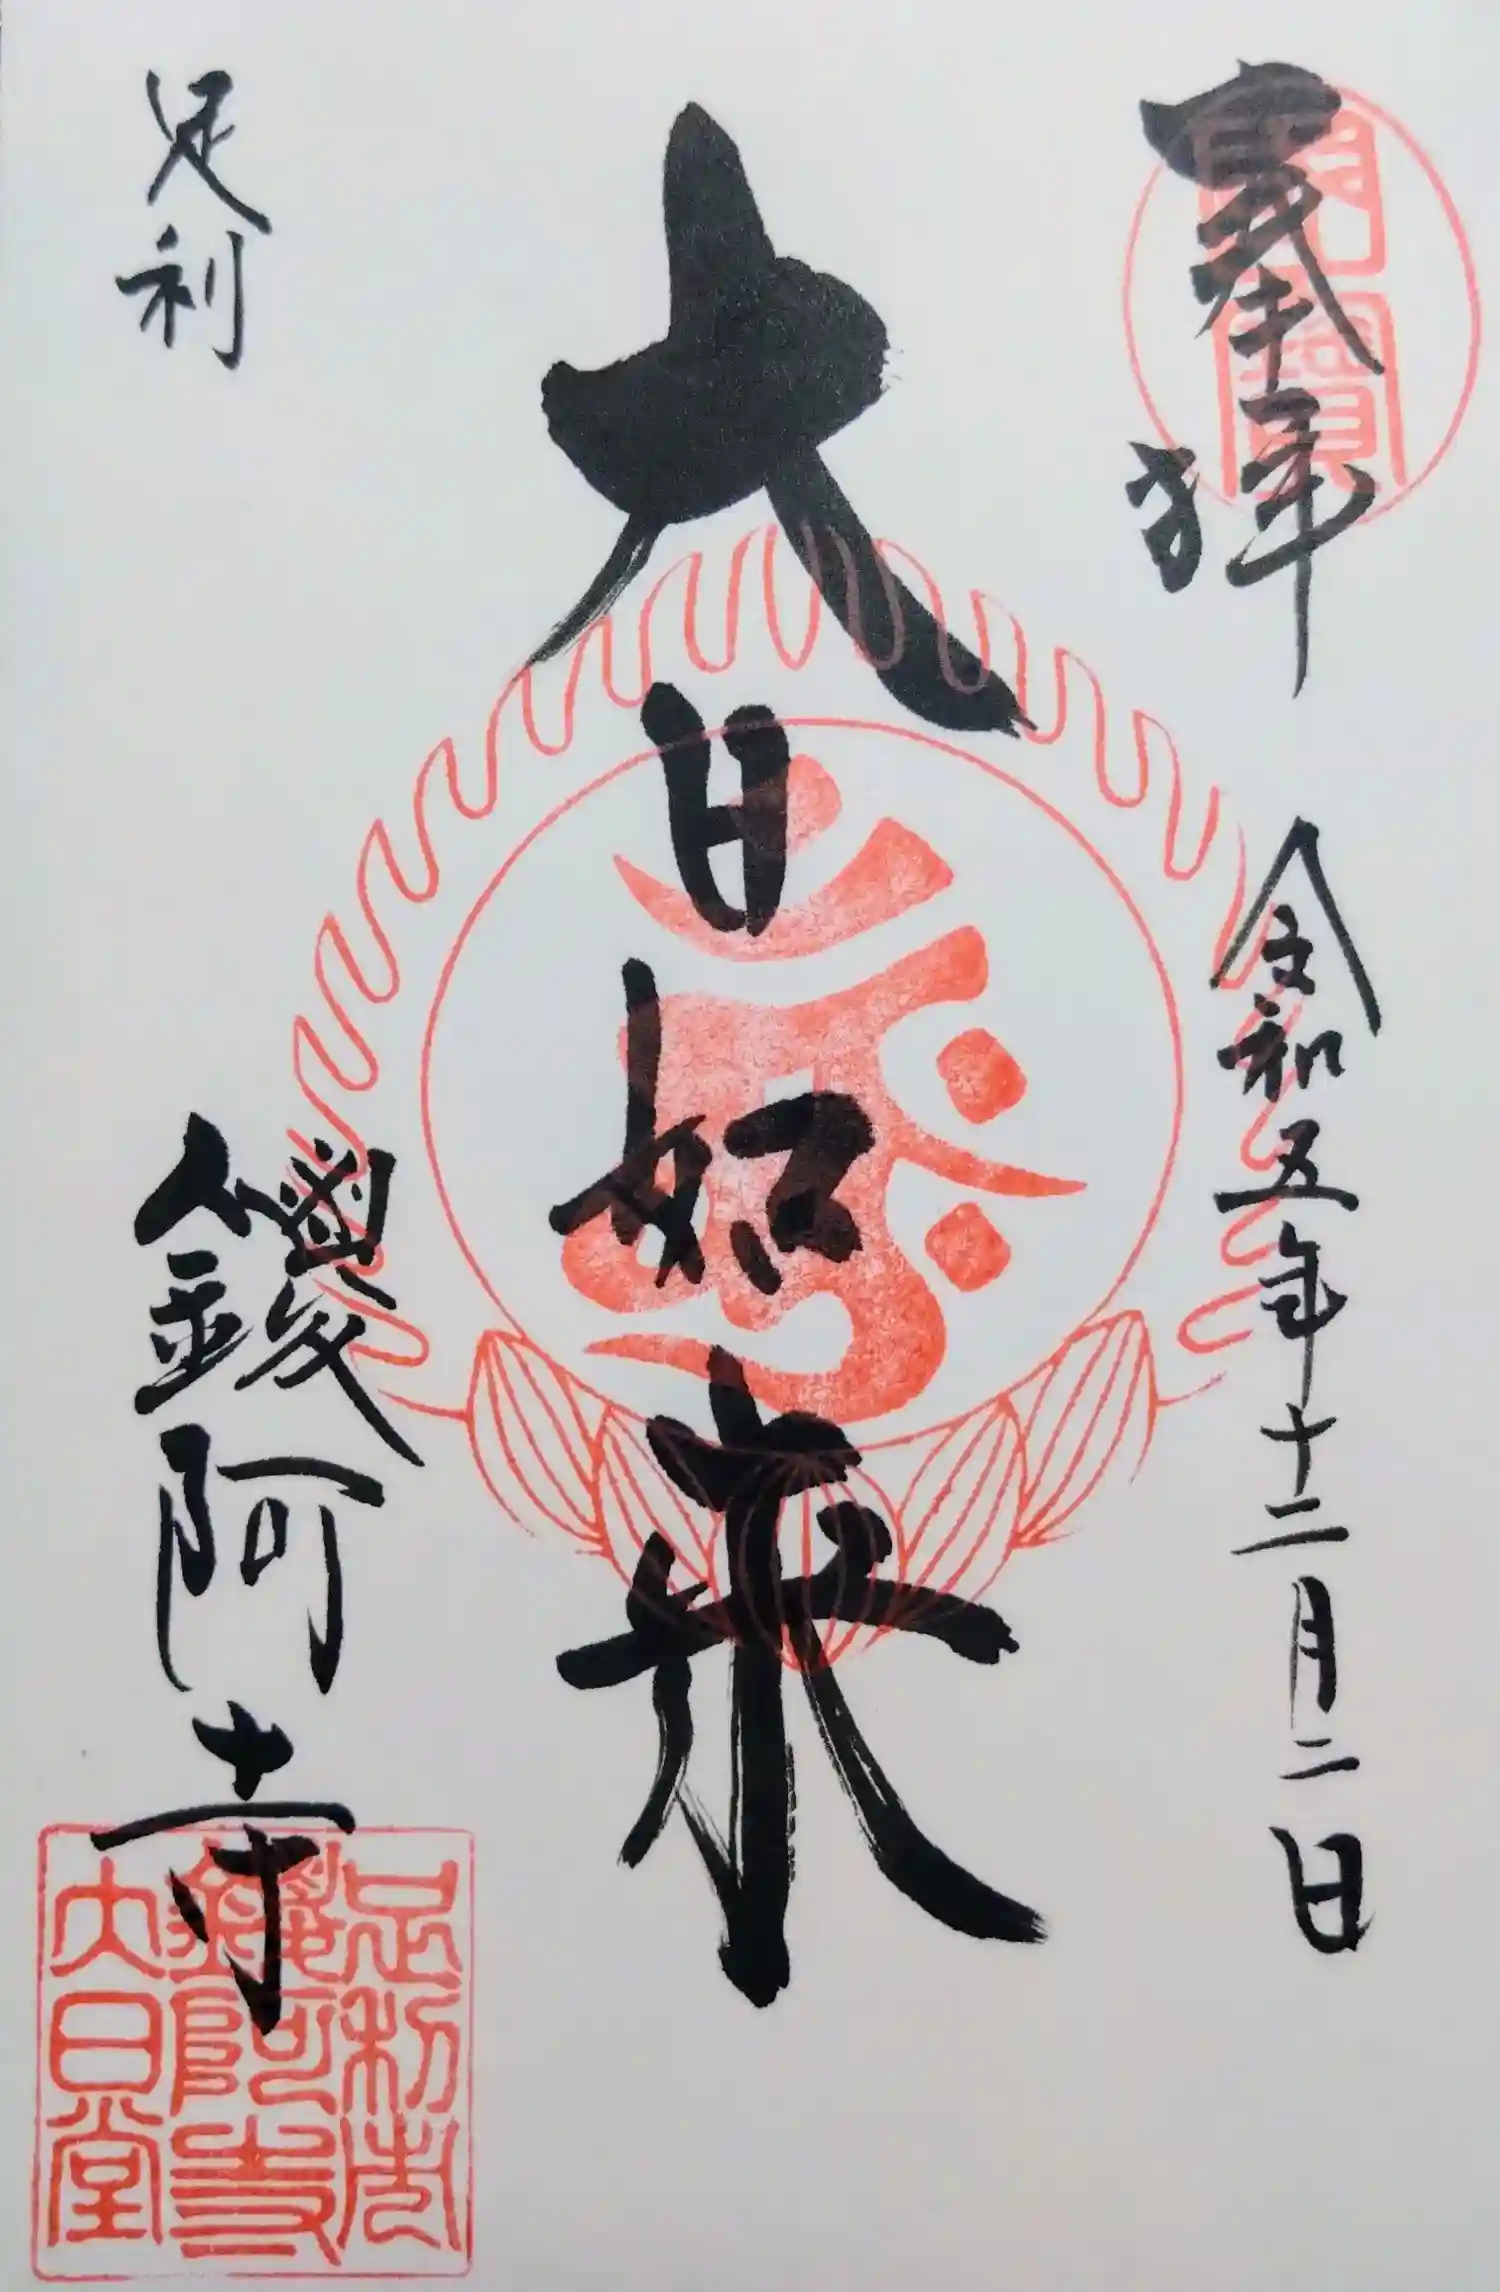 奉拝
令和五年十二月二日
大日如来
足利
鑁阿寺
足利市
鑁阿寺
大日堂